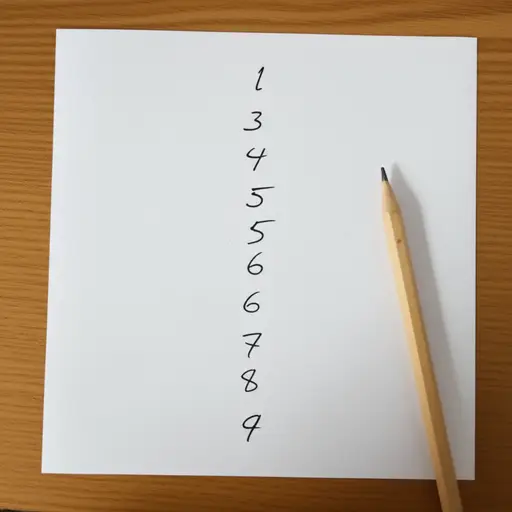 1
3
4
5
5
6
6
7
8
9